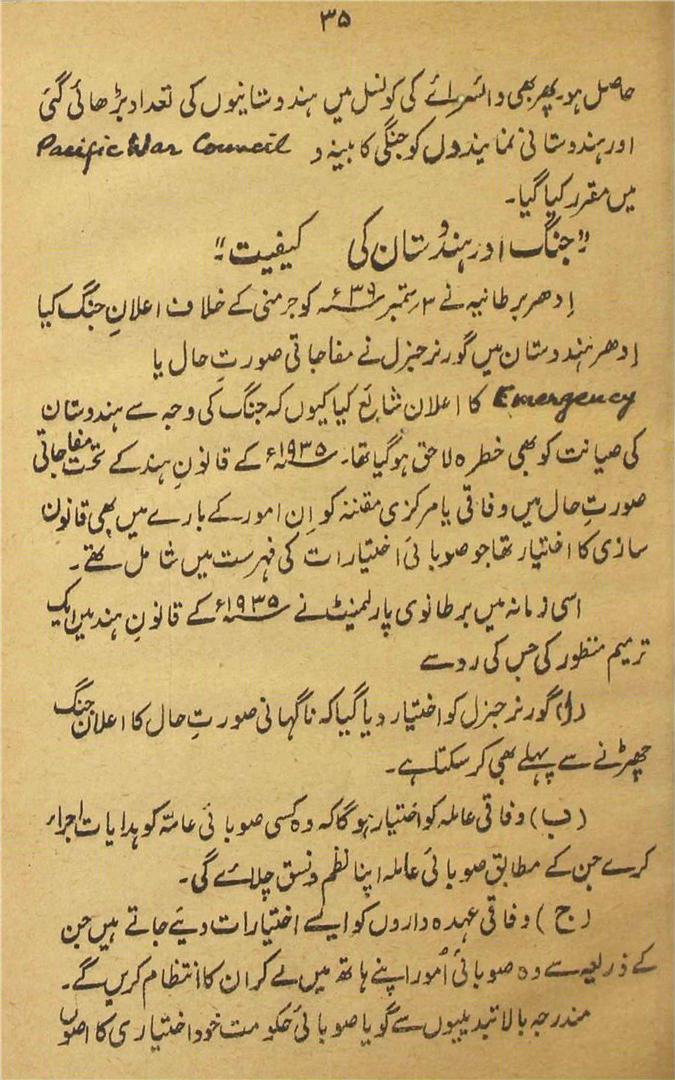 ۳۵
حاصل ہو۔ پھر بھی وائسرائے کی کونسل میں ہندوستانیوں کی تعداد بڑھائی گئی
اور ہندوستانی نمایندوں کو جنگی کابینہ و Pacific War Council
میں مقرر کیا گیا۔
"جنگ اور ہندوستان کی کیفیت":
اِدھر برطانیہ نے ۳ ستمبر ۳۹ء کو جرمنی کے خلاف اعلانِ جنگ کیا
اِدھر ہندوستان میں گورنر جنرل نے مفاجاتی صورتِ حال یا
Emergency کا اعلان شایع کیا کیوں کہ جنگ کی وجہ سے ہندوستان
کی صیانت کو بھی خطرہ لاحق ہو گیا تھا۔ ۱۹۳۵ء کے قانونِ ہند کے تحت مفاجاتی
صورتِ حال میں وفاقی یا مرکزی مقننہ کو اِن امور کے بارے میں بھی قانون
سازی کا اختیار تھا جو صوبائی اختیارات کی فہرست میں شامل تھے۔
اسی زمانہ میں برطانوی پارلیمنٹ نے ۱۹۳۵ء کے قانونِ ہند میں ایک
ترمیم منظور کی جس کی رو سے
(ا) گورنر جنرل کو اختیار دیا گیا کہ ناگہانی صورتِ حال کا اعلان جنگ
چھڑنے سے پہلے بھی کر سکتا ہے۔
(ب) وفاقی عاملہ کو اختیار ہوگا کہ وہ کسی صوبائی عاملہ کو ہدایات اجراء
کرے جن کے مطابق صوبائی عاملہ اپنا نظم و نسق چلائے گی۔
(ج) وفاقی عہدہ داروں کو ایسے اختیارات دیئے جاتے ہیں جن
کے ذریعہ سے وہ صوبائی اُمور اپنے ہاتھ میں لے کر ان کا انتظام کریں گے۔
مندرجہ بالا تبدیلیوں سے گویا صوبائی حکومت خود اختیاری کا اصول